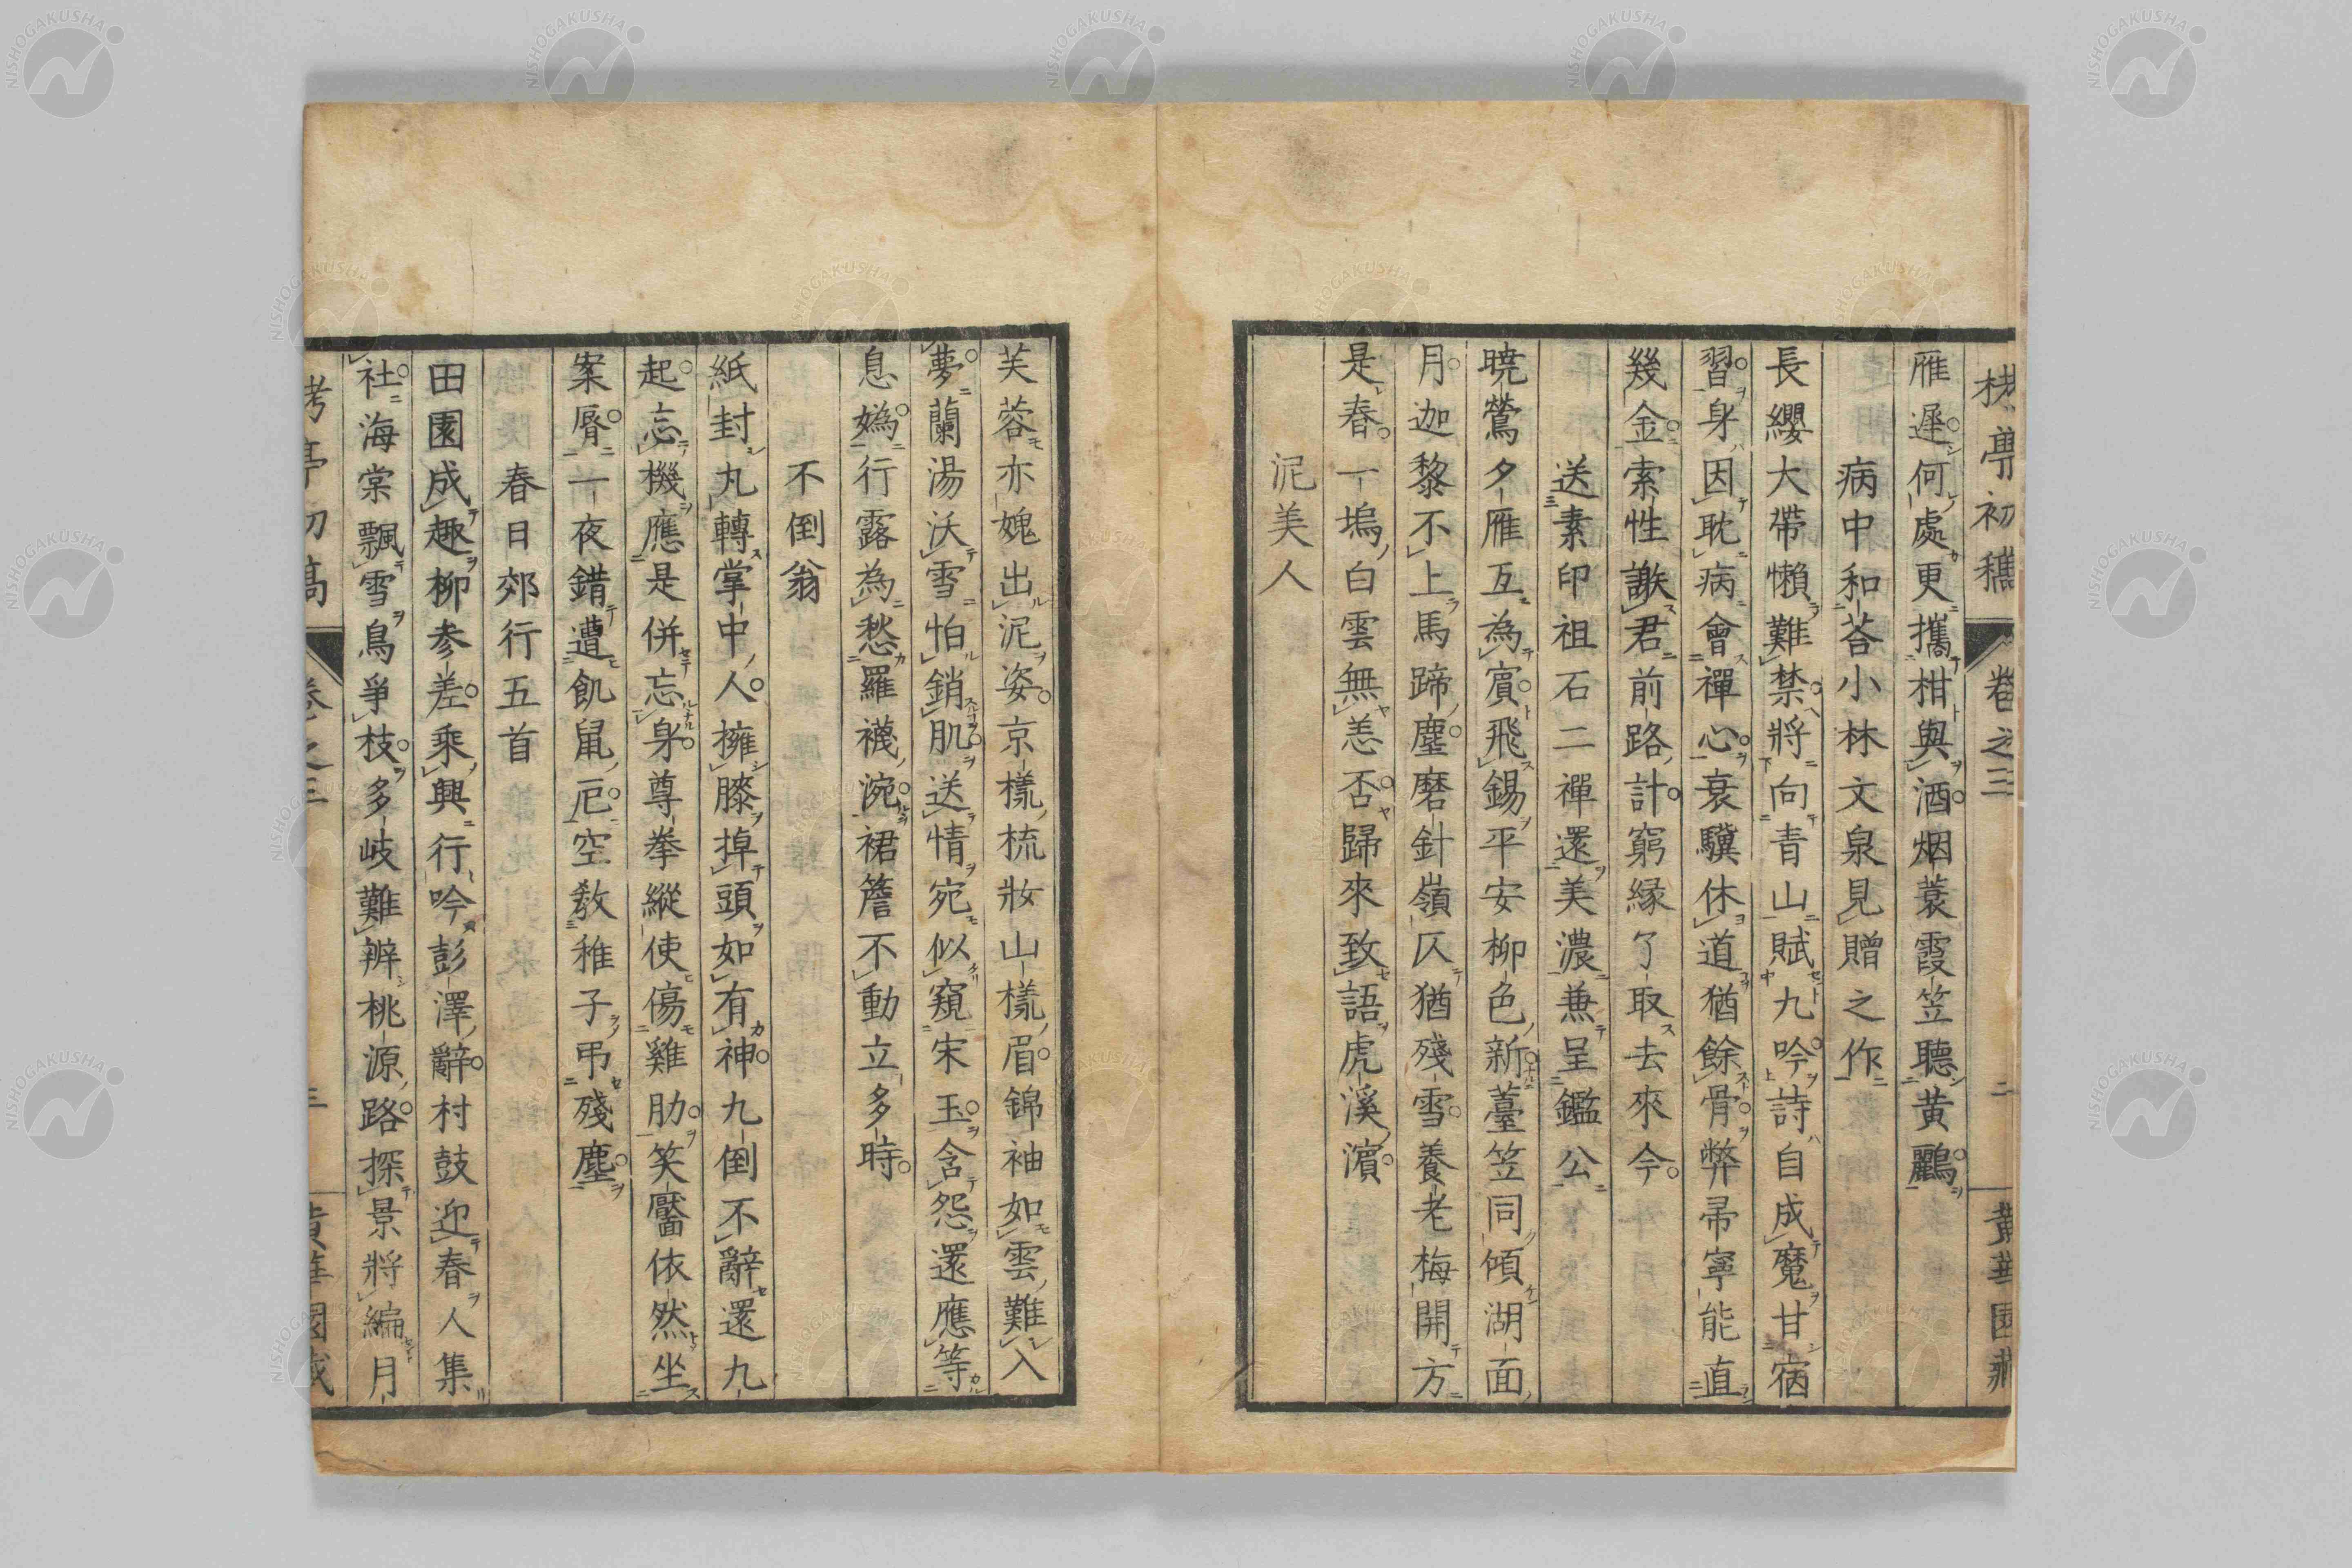 栲亭初稿 卷之三 二 黄華園藏
雁遲何處更攜柑與酒烟蓑霞笠聽黄鸝
病中和荅小林文泉見贈之作
長纓大帶懶難禁將向青山賦九吟詩自成魔甘宿
習身因耽病會禪心衰驥休道猶餘骨弊帚寧能直
幾金索性謝君前路計窮緣了取去來今
送素印祖石二禪還美濃兼呈鑑公
曉鶯夕雁互為賓飛錫平安柳色新薹笠同傾湖面
月迦黎不上馬蹄塵磨針嶺仄猶殘雪養老梅開方
是春一塢白雲無恙否歸來致語虎溪濱
泥美人
芙蓉亦媿出泥姿京樣梳妝山樣眉錦袖如雲難入
夢蘭湯沃雪怕銷肌送情宛似窺宋玉含怨還應等
息媯行露為愁羅襪涴裙簷不動立多時
不倒翁
紙封丸轉掌中人擁膝掉頭如有神九倒不辭還九
起忘機應是併忘身尊拳縱使傷雞肋笑靨依然坐
案脣一夜錯遭飢鼠厄空教稚子弔殘塵
春日郊行五首
田園成趣柳參差乘興行吟彭澤辭村鼓迎春人集
社海棠飄雪鳥爭枝多岐難辨桃源路探景將編月
栲亭初稿 卷之三 三 黄華園藏
NISHOGAKUSHA